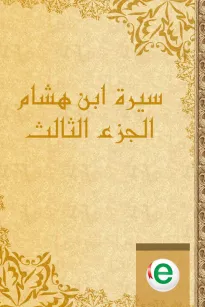 سيرة ابن هشام
الجزء الثالث
e